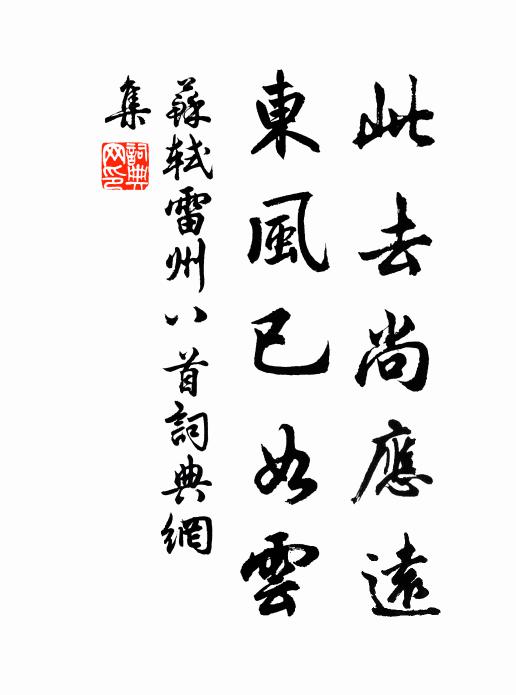 此去尚應遠
東風已如雲
蘇軾雷州八首詞典網
集
詞典網印